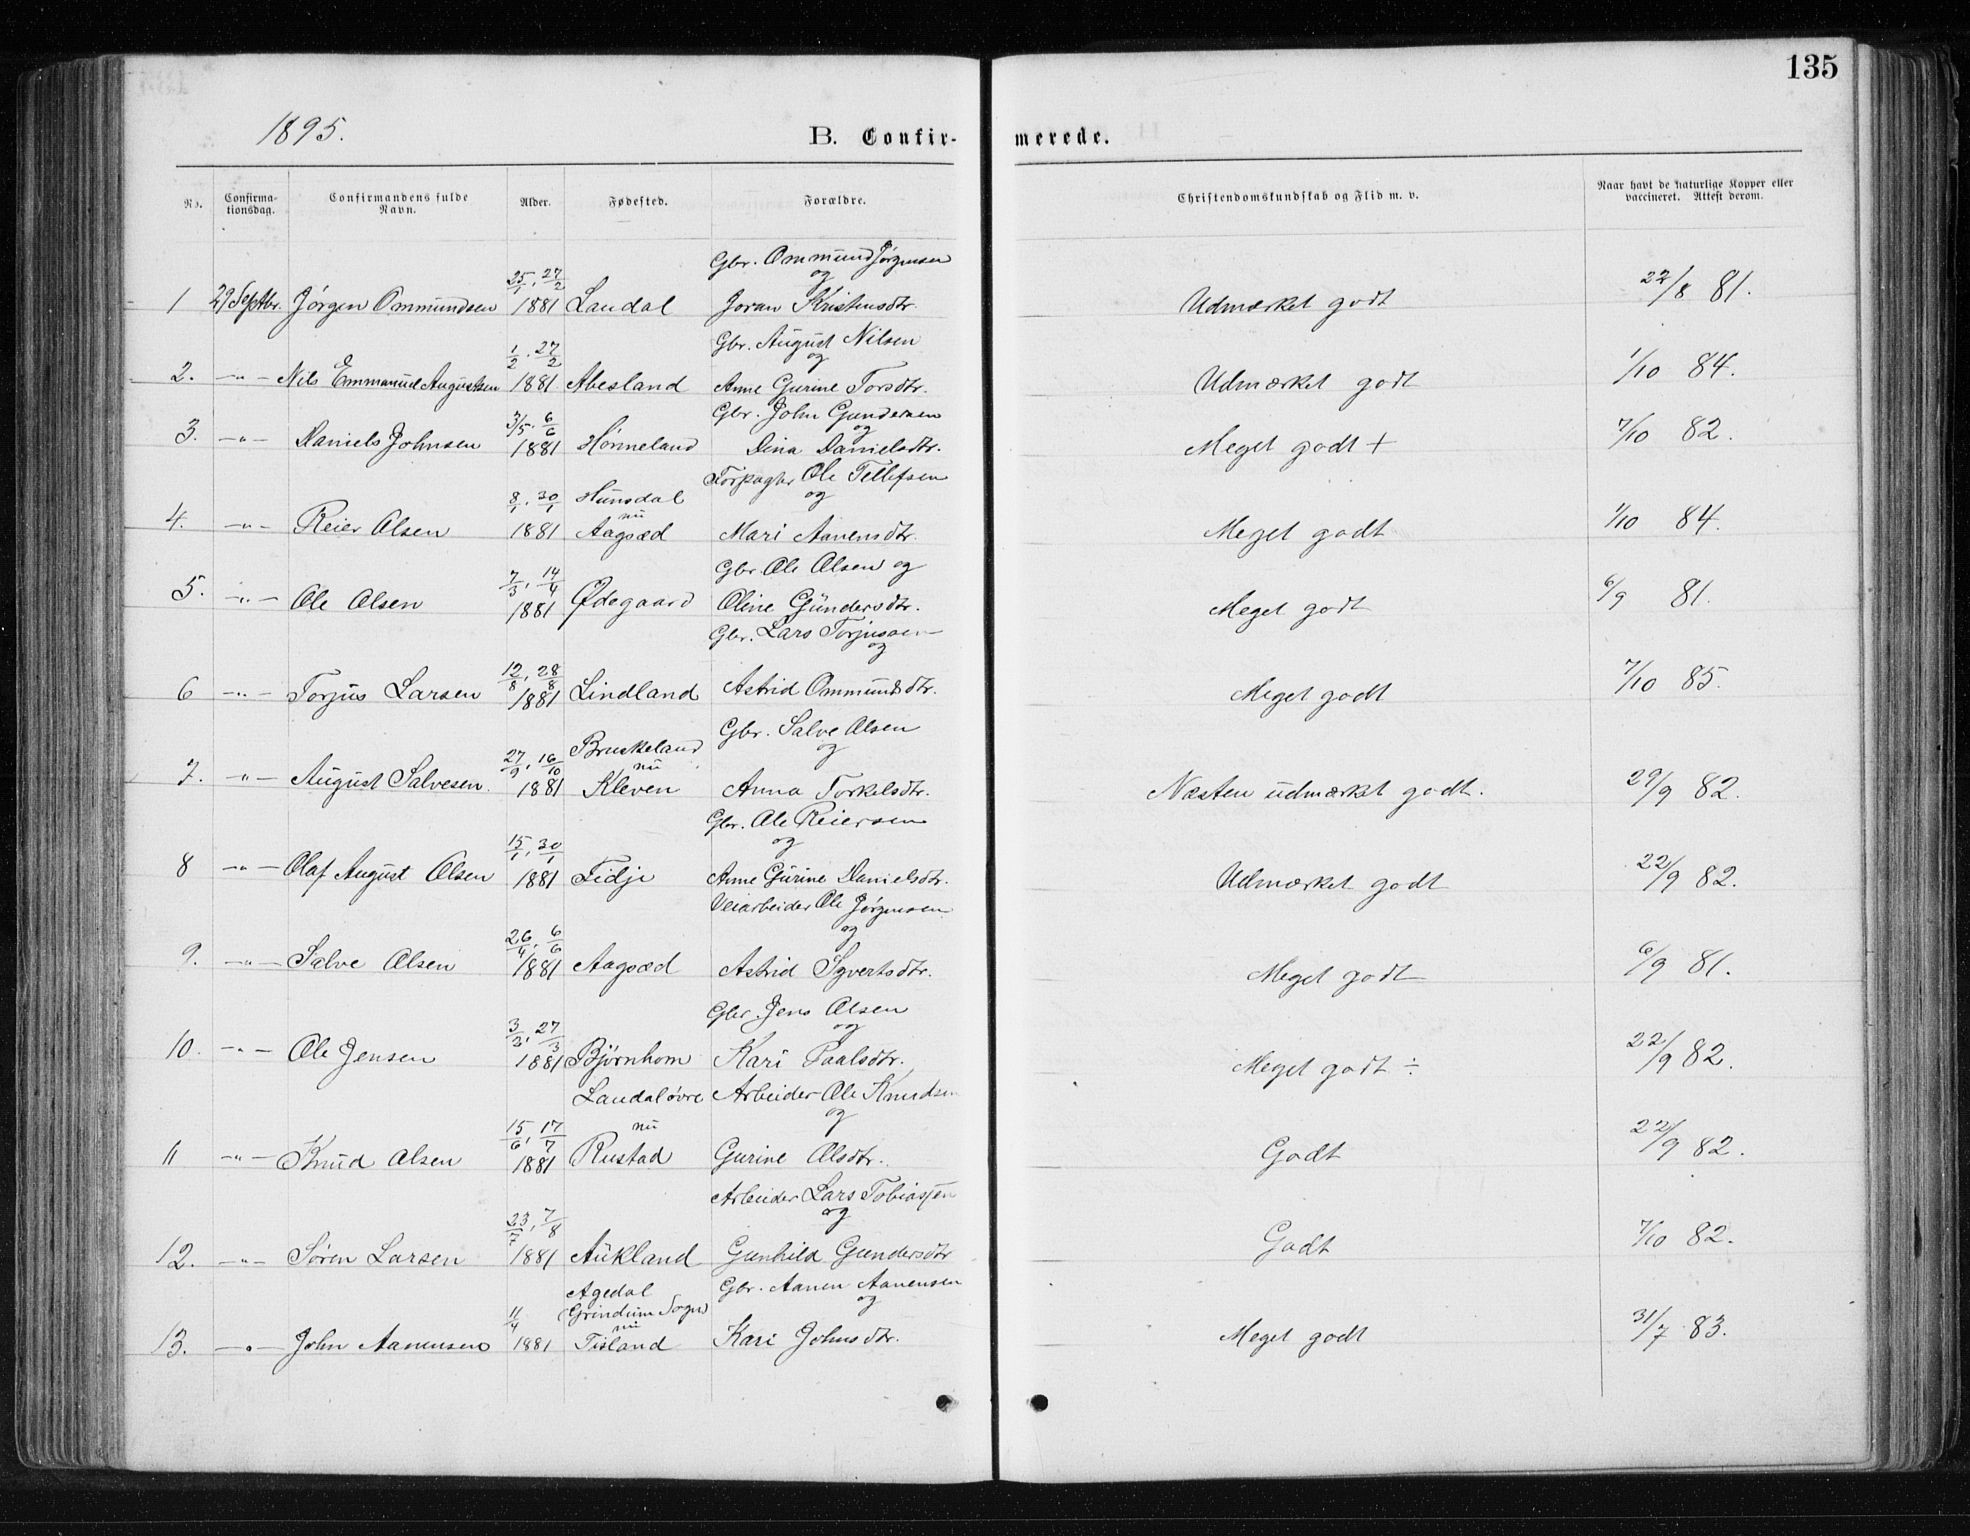 135
1895.
B. Confirmerede.
No. Confirmationsdag. Confirmandens fulde Navn. Alder. Fødested. Forældre. Christendomskundskab og Flid m. v. Naar havt de naturlige Kopper eller vaccineret. Attest derom.
Gbr. Ommund Jørgensen
25/1, 27/2 og 22/8 81.
1 29 Septbr. Jørgen Ommundsen 1881 Laudal Joran Kristensdtr. Udmærket godt
Gbr. August Nilsen
1/2. 27/2 og 1/10 84.
2. -"- Nils Emmanuel Augustsen 1881 Abesland Anne Gurine Torsdtr. Udmærket godt
3/5. 6/6 Gbr. John Gundersen og
3. -"- Daniels Johnsen 1881 Hønneland Dina Danielsdtr. Meget godt + 7/10 82.
Forpagter Ole Tellefsen
8/1. 30/1 Hunsdal nu og
4. -"- Reier Olsen 1881 Aagsæd Mari Aanensdtr. Meget godt 1/10 84.
7/3, 14/4 Gbr. Ole Olsen og
5. -"- Ole Olsen 1881 Ødegaard Oline Gundersdtr. Meget godt 6/9 81.
Gbr. Lars Torjussen og
12/8, 28/8
6 -"- Torjus Larsen 1881 Lindland Astrid Ommundsdtr. Meget godt 7/10 85.
Gbr. Salve Olsen
27/9, 16/10 Bruskeland nu og
7. -"- August Salvesen. 1881 Kleven Anna Torkelsdtr. Næsten udmærket godt. 29/9 82.
Gbr. Ole Reiersen
15/1, 30/1 og
8 -"- Olaf August Olsen 1881 Fidje Anne Gurine Danielsdtr. Udmærket godt 22/9 82.
Veiarbeider Ole Jørgensen
26/4, 6/6 og
9. -"- Salve Olsen 1881 Aagsæd Astrid Syvertsdtr. Meget godt 6/9 81.
Gbr. Jens Olsen
27/3 og
10. -"- Ole Jensen 1881 Bjørnhom Kari Paalsdtr. Meget godt ÷ 22/9 82.
Laudal øvre Arbeider Ole Knudsen
15/6, 17/7 nu og
11 -"- Knud Olsen 1881 Rustad Gurine Olsdtr. Godt 22/9 82.
Arbeider Lars Tobiassen
23/7, 7/8 og
12. -"- Søren Larsen 1881 Aukland Gunhild Gundersdtr Godt 7/10 82.
Agedal Gbr. Aanen Aanensen
11/4 (Grindum Sogn) nu og
13. -"- John Aanensen 1881 Tisland Kari Johnsdtr. Meget godt 31/7 83.